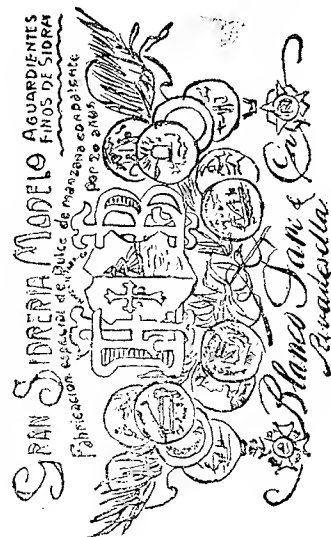 GRAN SIDRERIA MODELO
AGUARDIENTES
FINOS DE SIDRA
Fabricación especial de Dulce de manzana con patente
por 20 años
H B
Blanco Jarri & Cª
Rivadesella